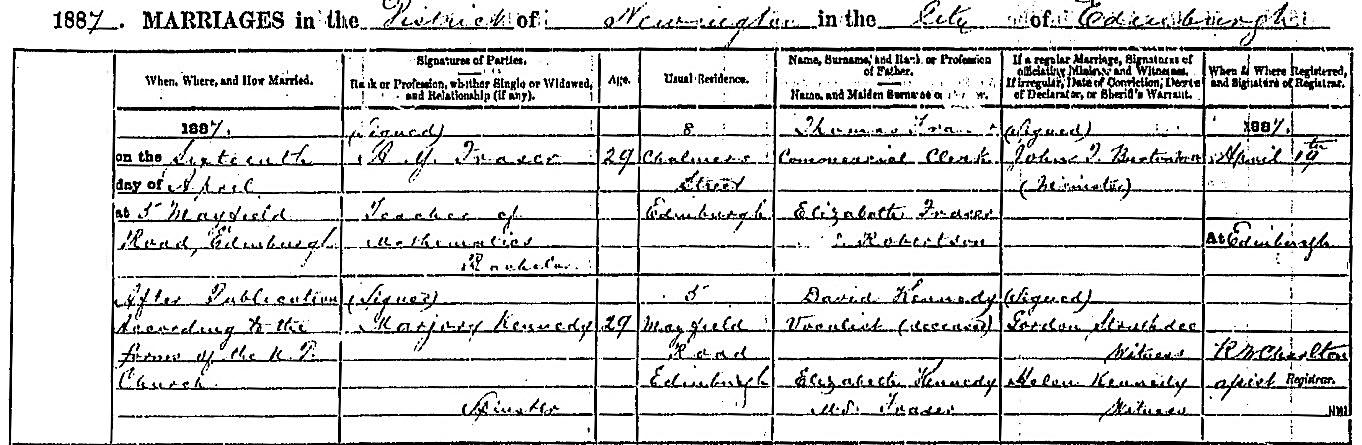 1887. MARRIAGES in the District of Newington in the City of Edinburgh
When, Where, and How Married.
Signatures of Parties.
Rank or Profession, whether Single or Widowed, and Relationship (if any).
Age.
Usual Residence.
Name, Surname, and Rank or Profession of Father.
Name, and Maiden Surname of
If a regular Marriage, Signatures of officiating Minister and Witnesses.
If irregular, Date of Conviction, Decree of Declarator, or Sheriff's Warrant.
When & Where Registered, and Signature of Registrar.
1887.
on the Sixteenth
day of April
at 5 Mayfield
Road, Edinburgh
After Publication
according to the
forms of the U.P.
Church
(Signed)
A. Y. Fraser
Teacher of
Mathematics
Bachelor
(Signed)
Marjory Kennedy
Spinster
29
29
8
Chalmers
Street
Edinburgh
5
Mayfield
Road
Edinburgh
Thomas
Commercial Clerk
Elizabeth Fraser
Robertson
David Kennedy
Vocalist (deceased)
Elizabeth Kennedy
M.S. Fraser
(Signed)
John T. Burton
(Minister)
(Signed)
Gordon Strathdee
Witness
Helen Kennedy
Witness
1887.
April 19th
At Edinburgh
R W Charlton
assist Registrar.